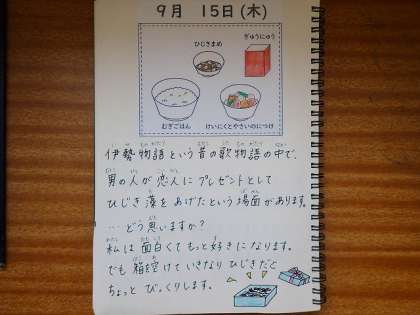 9月 15日(木)
ぎゅうにゅう
ひじきまめ
むぎごはん
けいにくとやさいのにつけ
伊勢物語という昔の歌物語の中で、
男の人が恋人にプレゼントとして
ひじき藻をあげたという場面があります。
…どう思いますか?
私は面白くてもっと好きになります。
でも箱を空けていきなりひじきだと
ちょっとびっくりします。